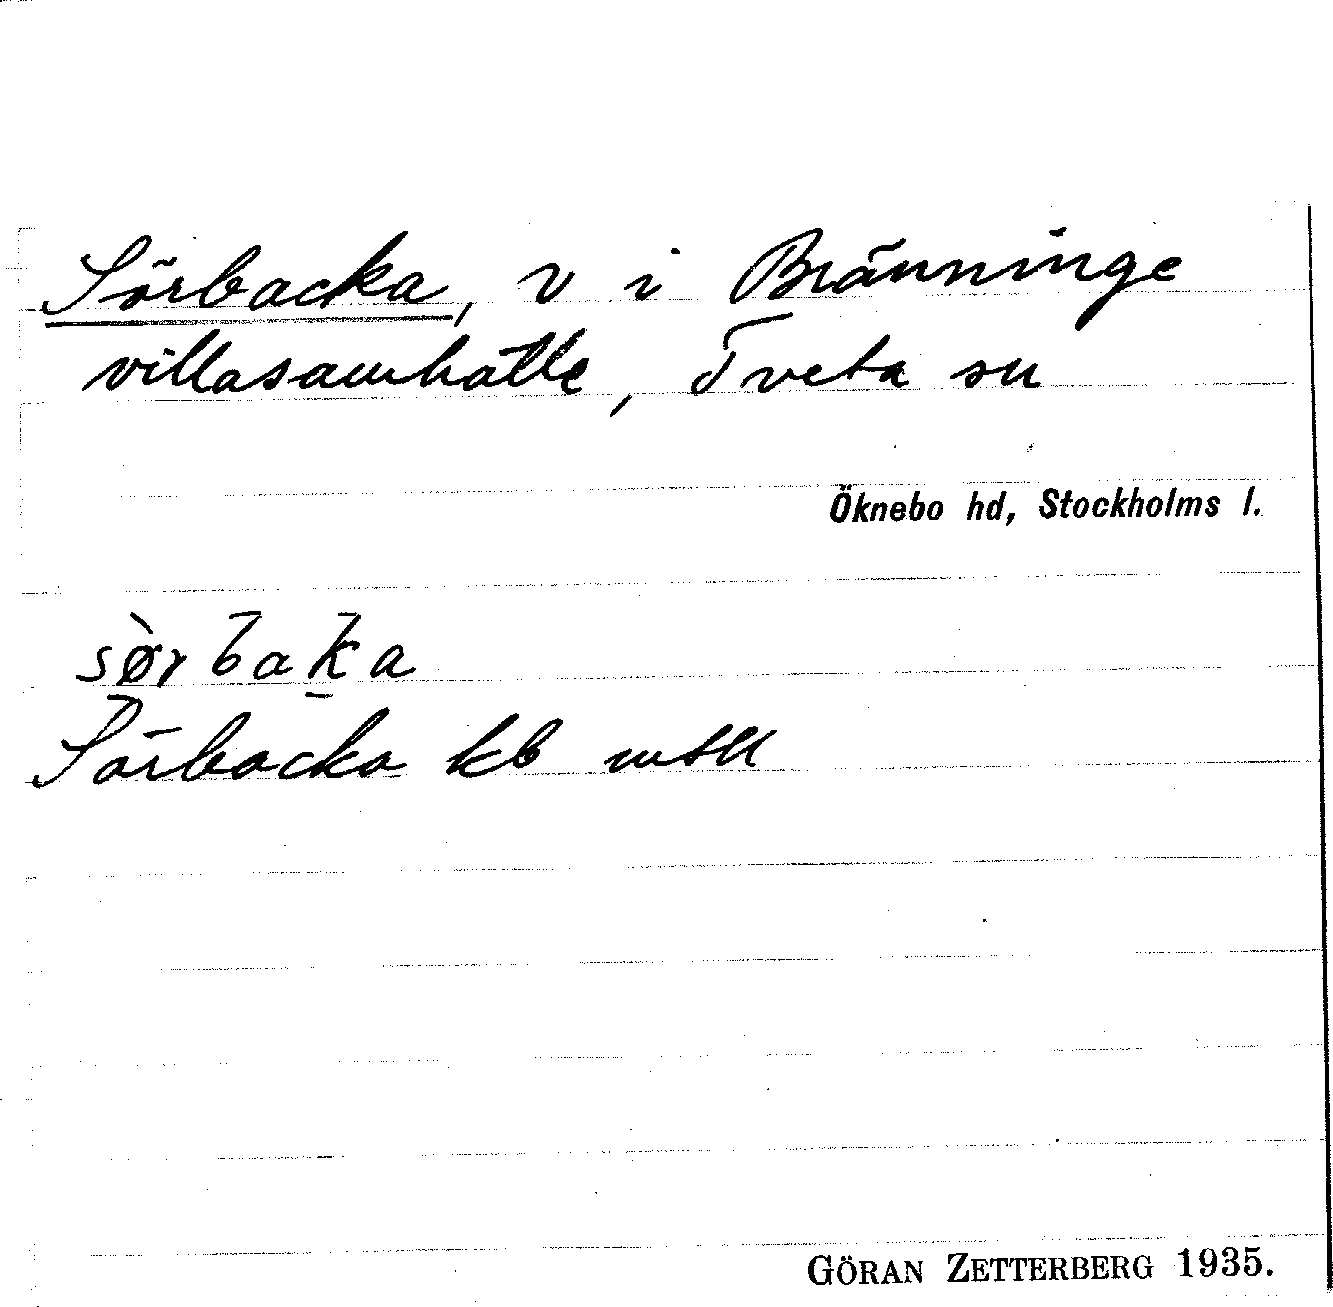 Sörbacka, v i Bränninge
villasamhälle, Tveta sn
Öknebo hd, Stockholms l.
sø̀rbaka
Sörbacka kb mtll
GÖRAN ZETTERBERG 1935.